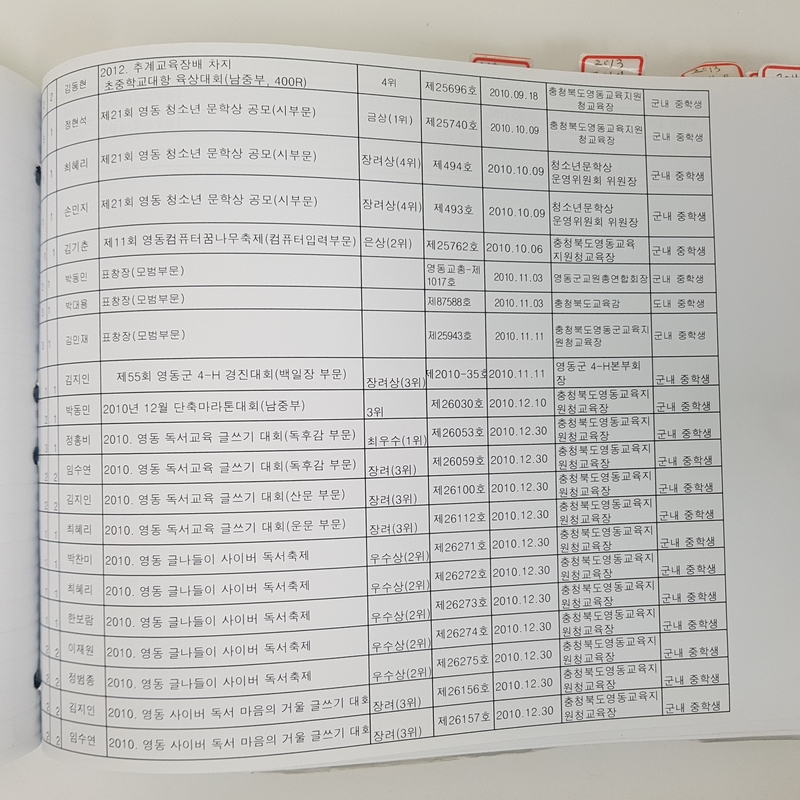 2013
2013
2 김동현 2012. 추계교육장배 차지
초중학교대항 육상대회(남중부, 400R) 4위 제25696호 2010.09.18 충청북도영동교육지원
청교육장 군내 중학생
1 정현석 제21회 영동 청소년 문학상 공모(시부문) 금상(1위) 제25740호 2010.10.09 충청북도영동교육지원
청교육장 군내 중학생
1 최혜리 제21회 영동 청소년 문학상 공모(시부문) 장려상(4위) 제494호 2010.10.09 청소년문학상
운영위원회 위원장 군내 중학생
1 손민지 제21회 영동 청소년 문학상 공모(시부문) 장려상(4위) 제493호 2010.10.09 청소년문학상
운영위원회 위원장 군내 중학생
1 김기춘 제11회 영동컴퓨터꿈나무축제(컴퓨터입력부문) 은상(2위) 제25762호 2010.10.06 충청북도영동교육
지원청교육장 군내 중학생
1 박동민 표창장(모범부문) 영동교총-제
1017호 2010.11.03 영동군교원총연합회장 군내 중학생
1 박대용 표창장(모범부문) 제87588호 2010.11.03 충청북도교육감 도내 중학생
1 김민재 표창장(모범부문) 제25943호 2010.11.11 충청북도영동군교육지
원청교육장 군내 중학생
1 김지인 제55회 영동군 4-H 경진대회(백일장 부문) 장려상(3위) 제2010-35호 2010.11.11 영동군 4-H본부회
장 군내 중학생
1 박동민 2010년 12월 단축마라톤대회(남중부) 3위 제26030호 2010.12.10 충청북도영동교육지
원청교육장 군내 중학생
1 정홍비 2010. 영동 독서교육 글쓰기 대회(독후감 부문) 최우수(1위) 제26053호 2010.12.30 충청북도영동교육지
원청교육장 군내 중학생
2 임수연 2010. 영동 독서교육 글쓰기 대회(독후감 부문) 장려(3위) 제26059호 2010.12.30 충청북도영동교육지
원청교육장 군내 중학생
2 김지인 2010. 영동 독서교육 글쓰기 대회(산문 부문) 장려(3위) 제26100호 2010.12.30 충청북도영동교육지
원청교육장 군내 중학생
1 최혜리 2010. 영동 독서교육 글쓰기 대회(운문 부문) 장려(3위) 제26112호 2010.12.30 충청북도영동교육지
원청교육장 군내 중학생
1 박찬미 2010. 영동 글나들이 사이버 독서축제 우수상(2위) 제26271호 2010.12.30 충청북도영동교육지
원청교육장 군내 중학생
1 최혜리 2010. 영동 글나들이 사이버 독서축제 우수상(2위) 제26272호 2010.12.30 충청북도영동교육지
원청교육장 군내 중학생
1 한보람 2010. 영동 글나들이 사이버 독서축제 우수상(2위) 제26273호 2010.12.30 충청북도영동교육지
원청교육장 군내 중학생
2 이재원 2010. 영동 글나들이 사이버 독서축제 우수상(2위) 제26274호 2010.12.30 충청북도영동교육지
원청교육장 군내 중학생
2 정범종 2010. 영동 글나들이 사이버 독서축제 우수상(2위) 제26275호 2010.12.30 충청북도영동교육지
원청교육장 군내 중학생
2 김지인 2010. 영동 사이버 독서 마음의 거울 글쓰기 대회 장려(3위) 제26156호 2010.12.30 충청북도영동교육지
원청교육장 군내 중학생
2 임수연 2010. 영동 사이버 독서 마음의 거울 글쓰기 대회 장려(3위) 제26157호 2010.12.30 충청북도영동교육지
원청교육장 군내 중학생